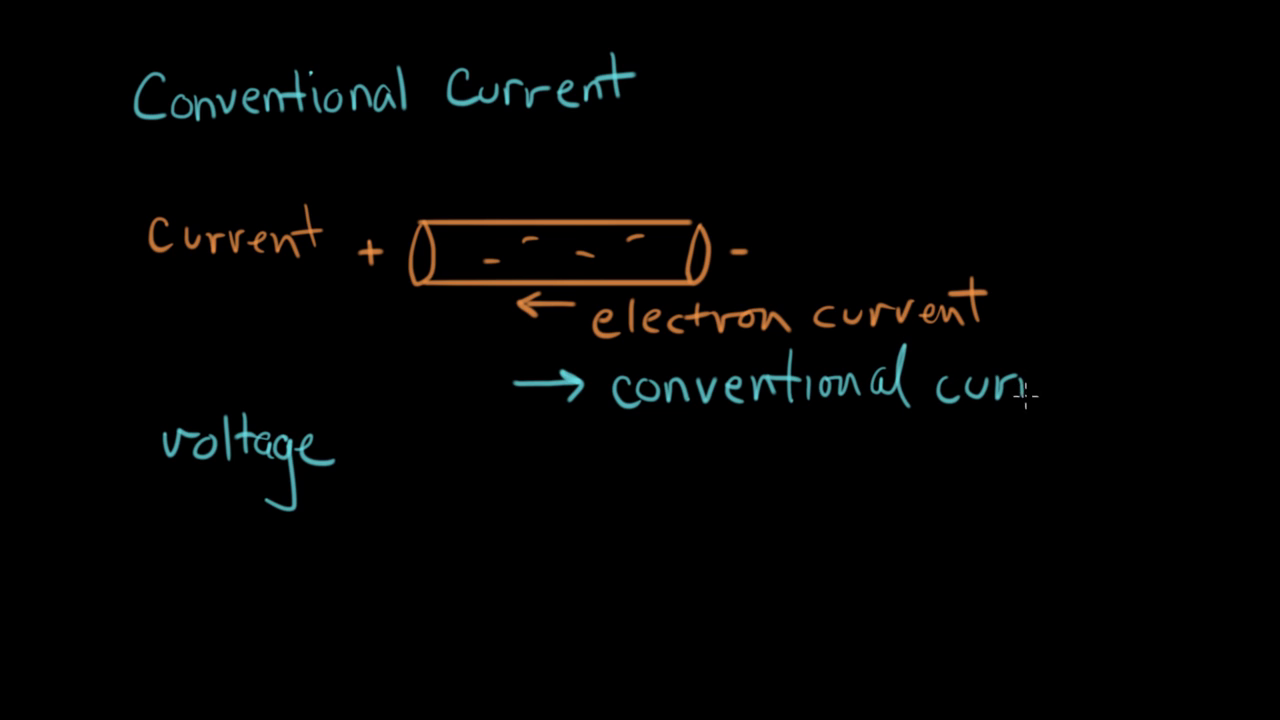 Conventional Current
Current + - - - - -
← electron current
→ conventional curr
voltage